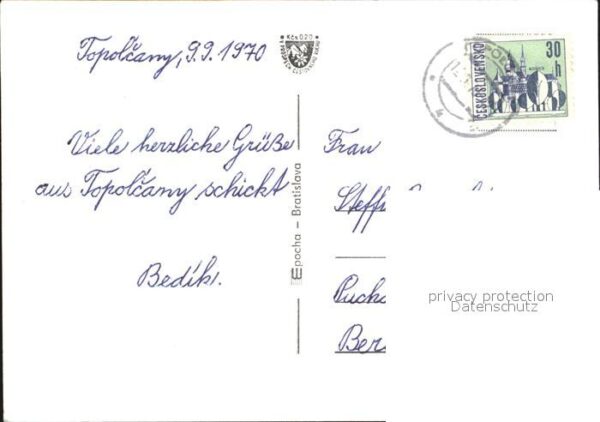 Topolčany, 9.9. 1970
Kčs 0,20
Viele herzliche Grüße
aus Topolčany schickt
Bedík.
Epocha – Bratislava
30
h
ČESKOSLOVENSKO
Frau
privacy protection
Datenschutz